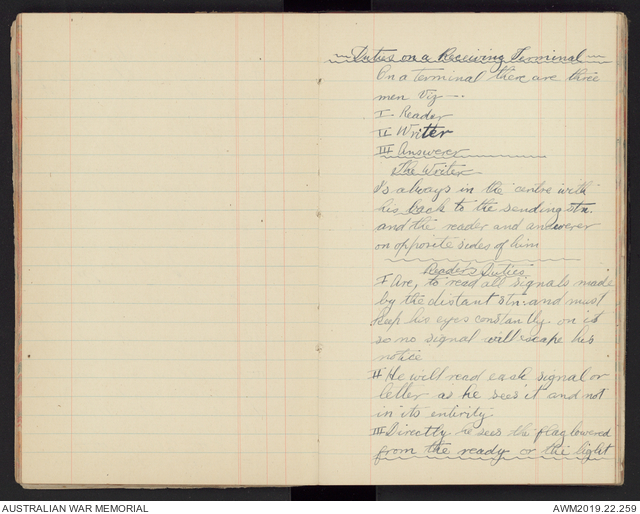 Duties on a Receiving Terminal
On a terminal there are three
men Viz -.
I Reader
II Writer
III Answerer
The Writer
Is always in the centre with
his back to the sending stn.
and the reader and answerer
on opposite sides of him
Reader's Duties
I Are, to read all signals made
by the distant stn: and must
keep his eyes constantly on it
so no signal will escape his
notice
II He will read each signal or
letter as he sees it and not
in its entirity.
III Directly he sees the flag lowered
from the ready or the light
AUSTRALIAN WAR MEMORIAL
AWM2019.22.259